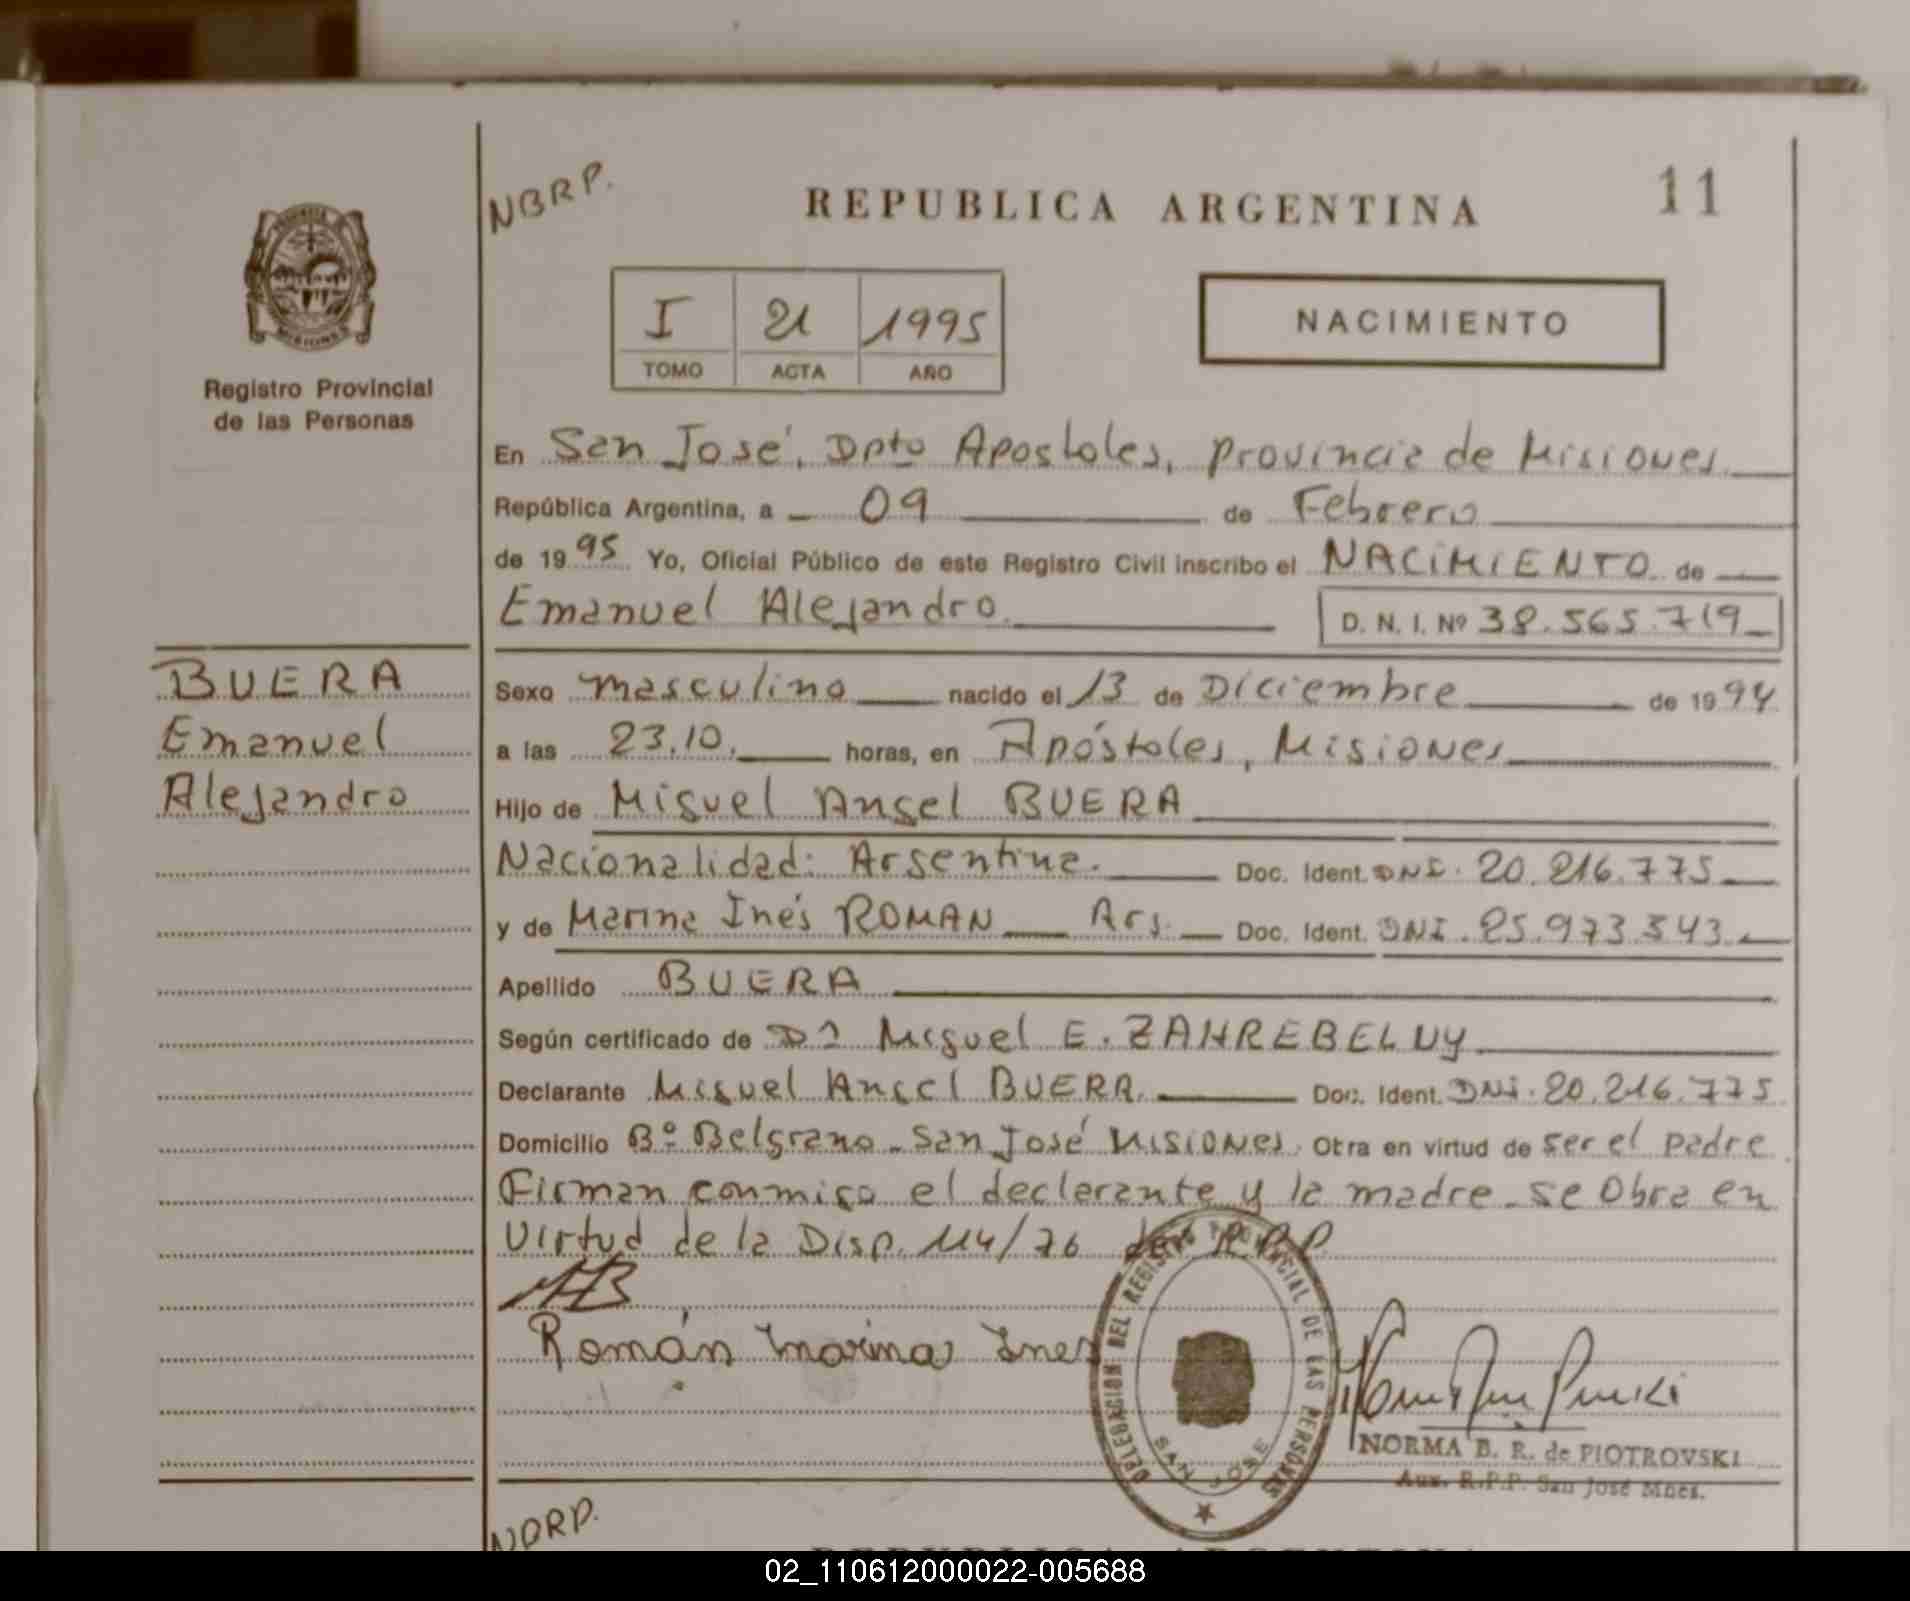 NBRP.
REPUBLICA ARGENTINA
11
I 21 1995
TOMO ACTA AÑO
NACIMIENTO
MISIONES
Registro Provincial
de las Personas
En San José, Dpto Apostoles, provincia de Misiones
República Argentina, a 09 de Febrero
de 1995 Yo, Oficial Público de este Registro Civil inscribo el NACIMIENTO de
Emanuel Alejandro D. N. I. Nº 38.565.719
BUERA
Emanuel
Alejandro
Sexo masculino nacido el 13 de Diciembre de 1994
a las 23.10. horas, en Apóstoles, Misiones
Hijo de Miguel Angel BUERA
Nacionalidad: Argentina. Doc. Ident. DNI. 20.216.775
y de Marina Inés ROMAN Arg. Doc. Ident. DNI. 25.973.543
Apellido BUERA
Según certificado de Dr Miguel E. ZAHREBELNY
Declarante Miguel Angel BUERA. Doc. Ident. DNI. 20.216.775
Domicilio Bº Belgrano - San José Misiones. Otra en virtud de ser el padre
Firman conmigo el declarante y la madre - se Obra en
Virtud de la Disp. 114/76 del R.P.P.
Román Marina Ines
DELEGACION DEL REGISTRO PROVINCIAL DE LAS PERSONAS
SAN JOSE
NORMA B. R. de PIOTROVSKI
Aux. R.P.P. San José Mnes.
NBRP.
REPUBLICA ARGENTINA
02_110612000022-005688